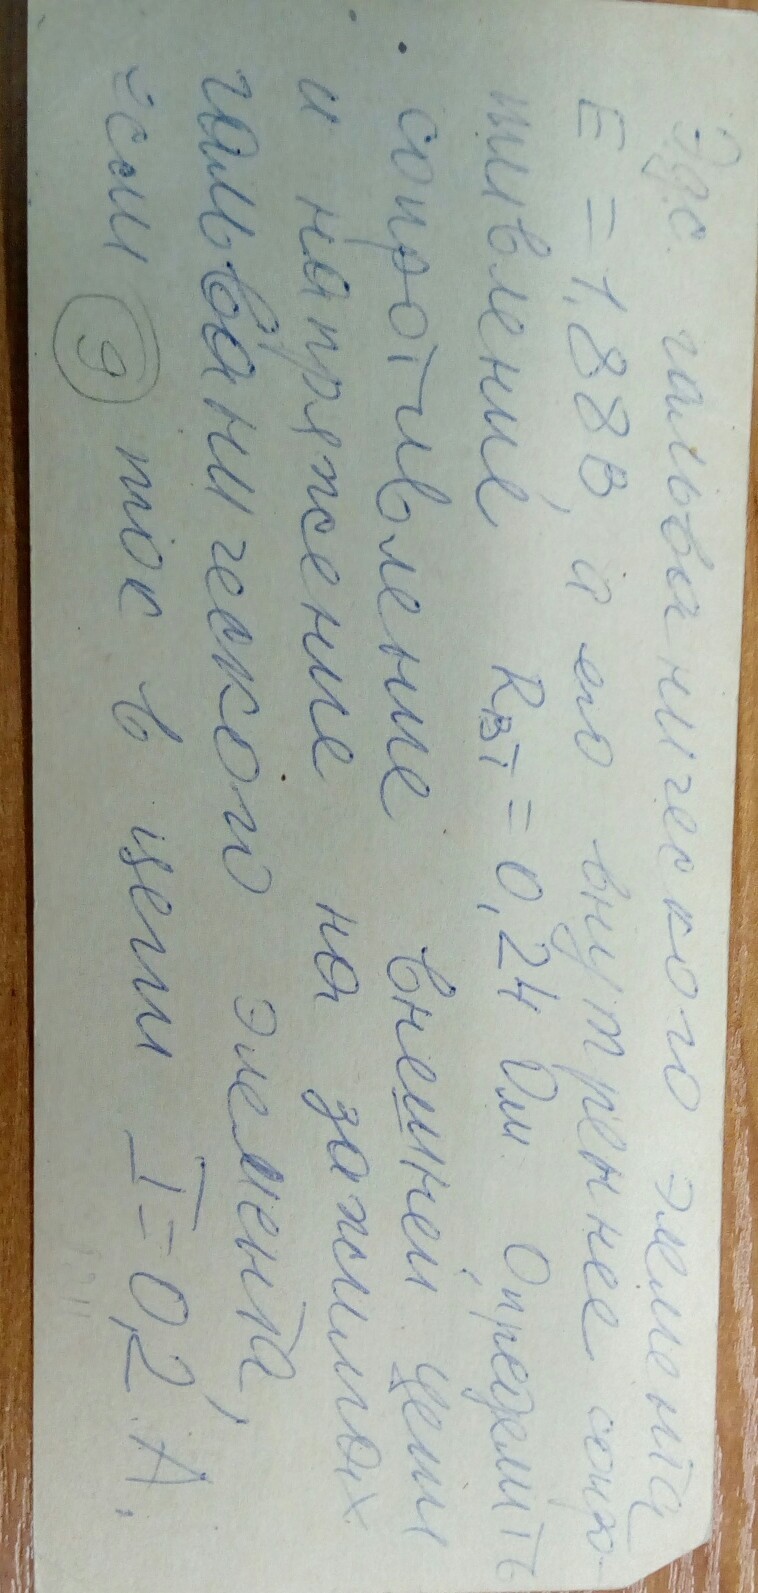 Эдс. гальванического элемента
E = 1,88 В, а его внутреннее сопро-
тивление, Rвт = 0,24 Ом. Определить
сопротивление внешней цепи
и напряжение на зажимах
гальванического элемента,
если ток в цепи I = 0,2 А.
9